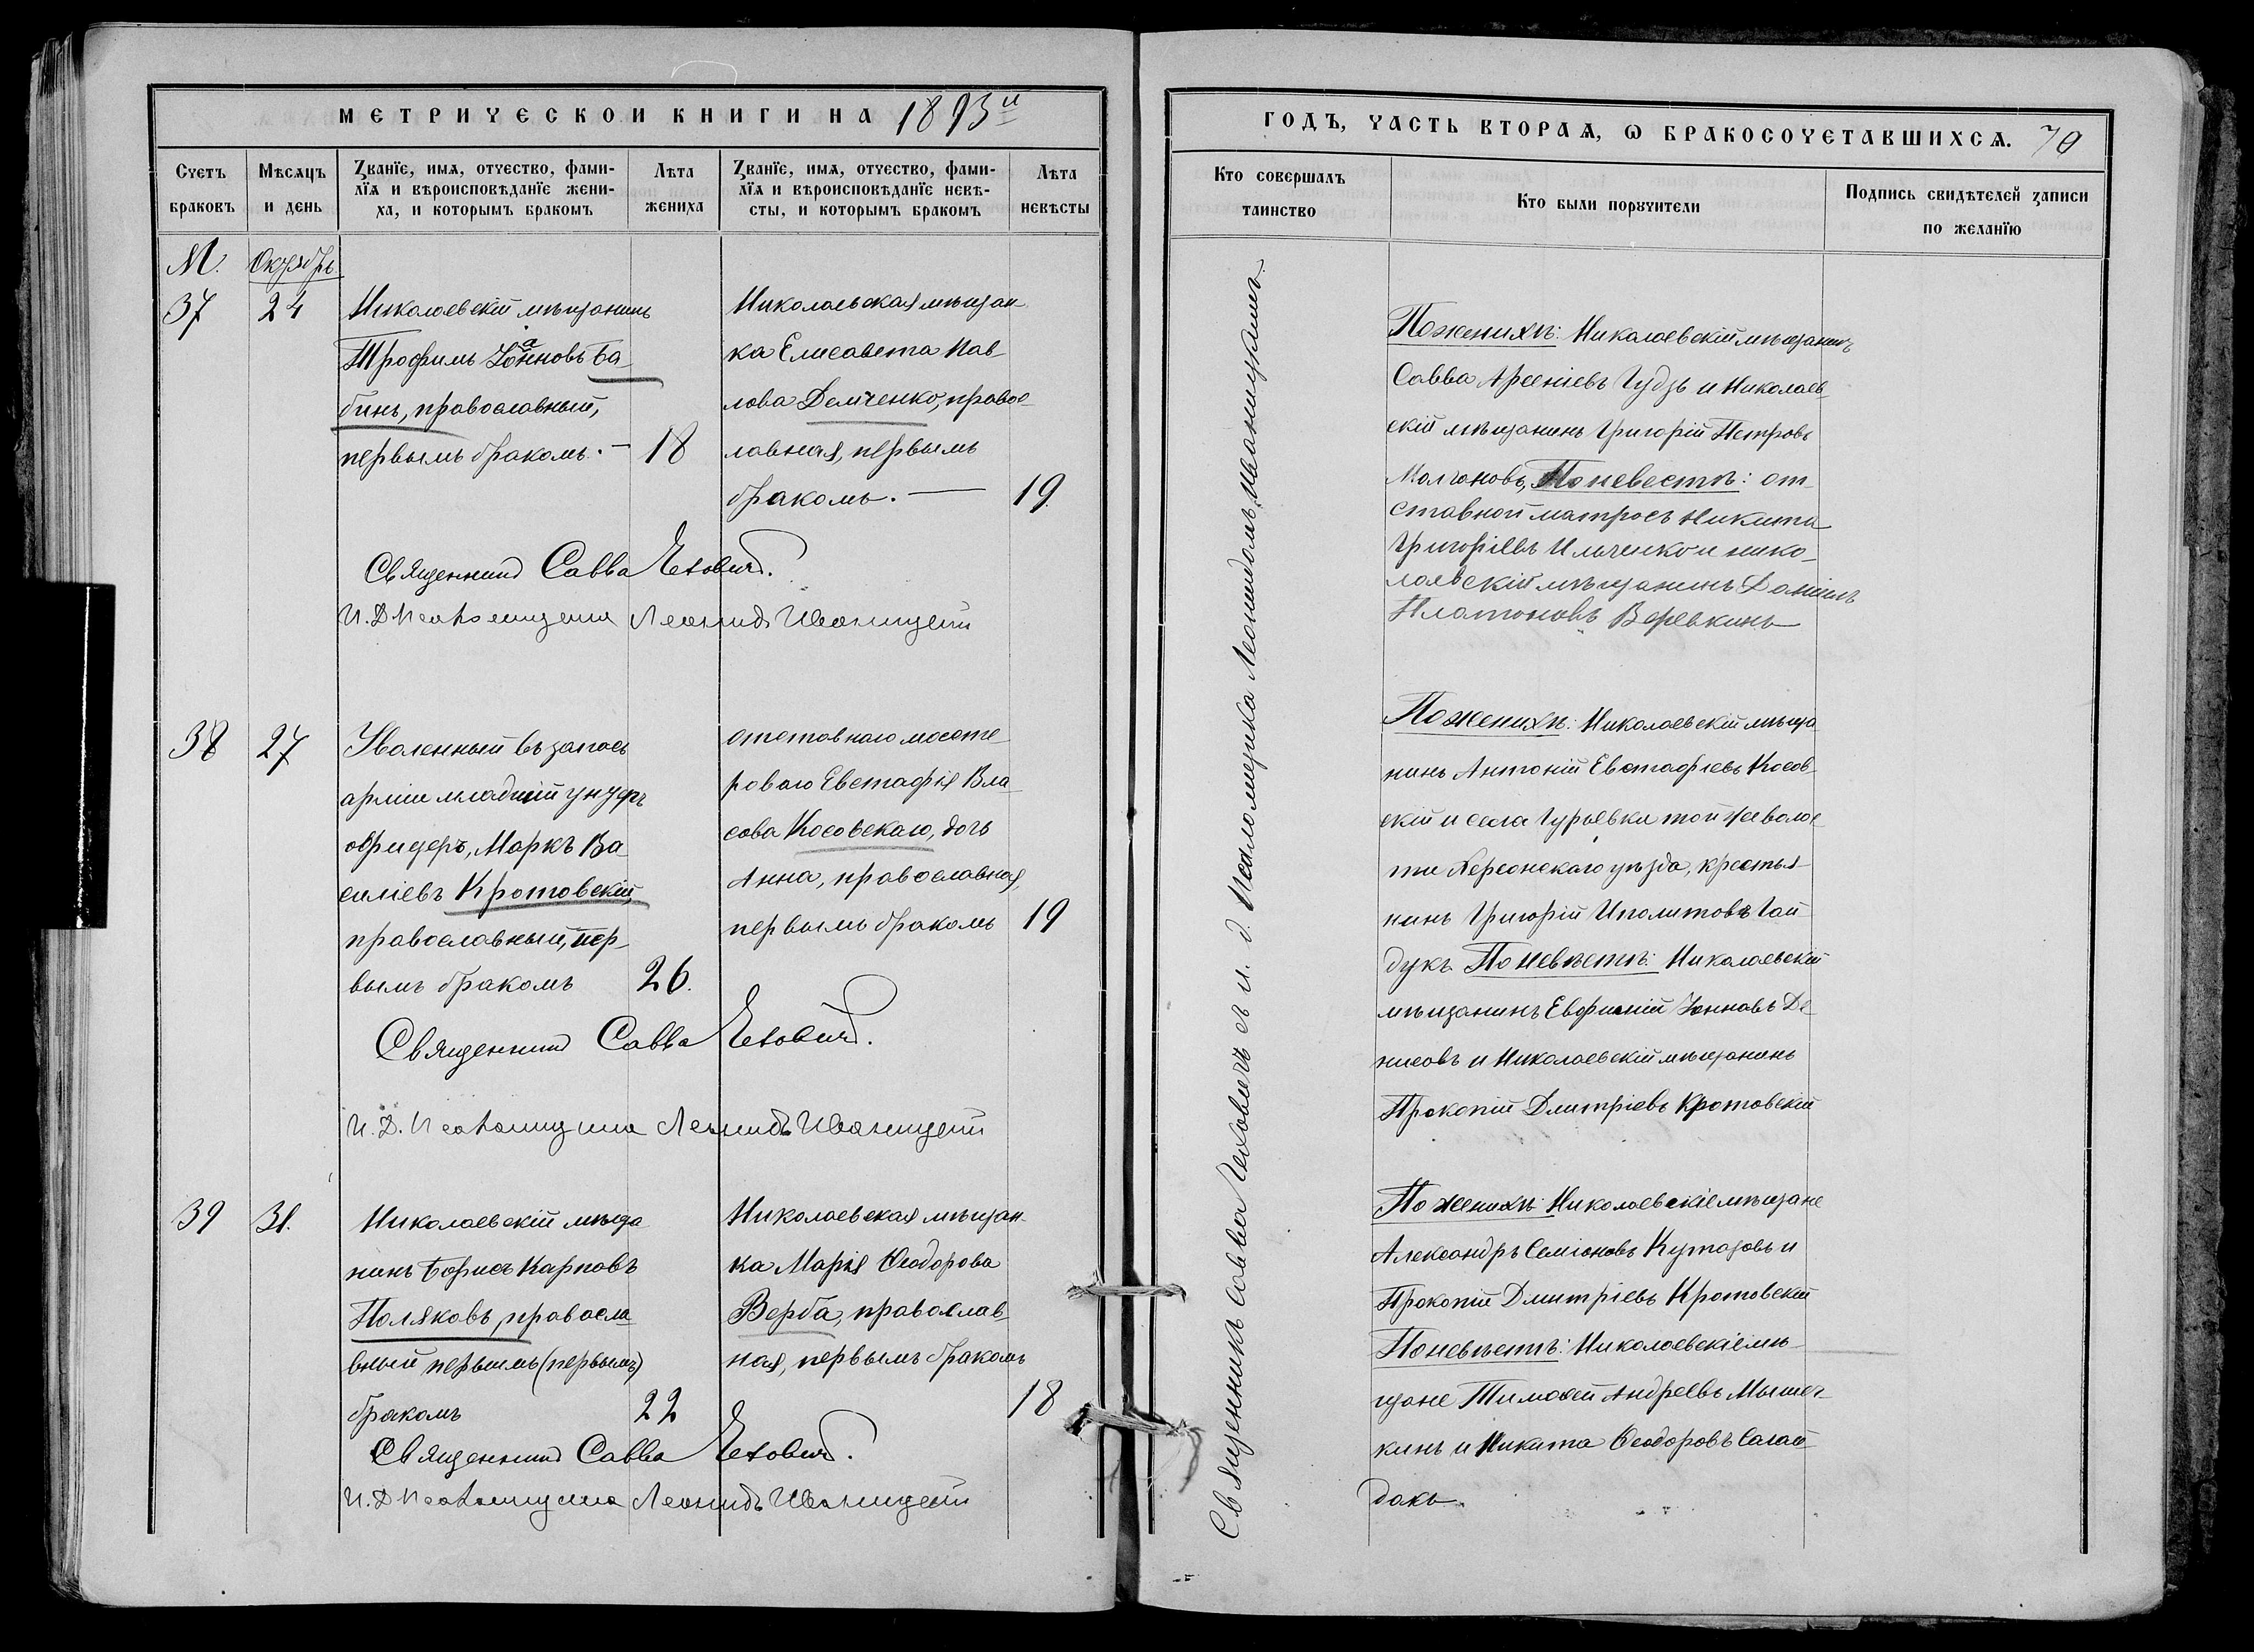 МЕТРИЧЕСКОЙ КНИГИ НА 1893й
Счетъ
браковъ
Мѣсяцъ
и день
Званїе, имѧ, отчество, фами-
лїѧ и вѣроисповѣданїе жени-
ха, и которымъ бракомъ
Лѣта
жениха
Званїе, имѧ, отчество, фами-
лїѧ и вѣроисповѣданїе невѣ-
сты, и которымъ бракомъ
Лѣта
невѣсты
М.
Октябрь
37
24
Николаевскій мѣщанинъ
Трофимъ Іоанновъ Ба-
бинъ, православный,
первымъ бракомъ. —
18
Николаевская мѣщан-
ка Елисавета Пав-
лова Демченко, правос-
лавная, первымъ
бракомъ. —
19
Священникъ Савва Ѣховичъ.
И. Д. Псаломщика Леонидъ Иваницкій
38
27
Уволенный въ запасъ
арміи младшій унтеръ
офицеръ, Маркъ Ва-
силіевъ Кротовскій,
православный, пер-
вымъ бракомъ
26.
отставнаго мосте-
роваго Евстафія Вла-
сова Косовскаго, дочь
Анна, православная,
первымъ бракомъ
19
Священникъ Савва Ѣховичъ.
И. Д. Псаломщика Леонидъ Иваницкій
39
31.
Николаевскій мѣща-
нинъ Борисъ Карповъ
Поляковъ, правосла-
вный первымъ (первымъ)
бракомъ
22
Николаевская мѣщан-
ка Марія Ѳеодорова
Верба, православ-
ная, первымъ бракомъ
18
Священникъ Савва Ѣховичъ.
И. Д. Псаломщика Леонидъ Иваницкій
ГОДЪ, ЧАСТЬ ВТОРАѦ, Ѡ БРАКОСОЧЕТАВШИХСѦ. 70
Кто совершалъ
таинство
Кто были порꙋчители
Подпись свидѣтелей записи
по желанїю
Священникъ Савва Ѣховичъ съ и. д. Псаломщика Леонидомъ Иваницкимъ.
По женихѣ: Николаевскій мѣщанинъ
Савва Арсеніевъ Гудзь и Николаев-
скій мѣщанинъ Григорій Петровъ
Молчановъ, По невестѣ: от-
ставной матросъ Никита
Григоріевъ Ильченко и нико-
лаевскій мѣщанинъ Даніилъ
Платоновъ Веревкинъ
По женихѣ: Николаевскій мѣща-
нинъ Антоній Евстафіевъ Косов-
скій и села Гурьевки той же волос-
ти Херсонскаго уѣзда, крестья-
нинъ Григорій Иполитовъ Гай-
дукъ По невѣстѣ: Николаевскій
мѣщанинъ Евфимій Іоанновъ Де-
нисовъ и Николаевскій мѣщанинъ
Прокопій Дмитріевъ Кротовскій
По женихѣ: Николаевскіе мѣщане
Александръ Семіоновъ Кутазовъ и
Прокопій Дмитріевъ Кротовскій
По невѣстѣ: Николаевскіе мѣ-
щане Тимофей Андреевъ Мышеч-
кинъ и Никита Ѳеодоровъ Сагай-
дакъ.